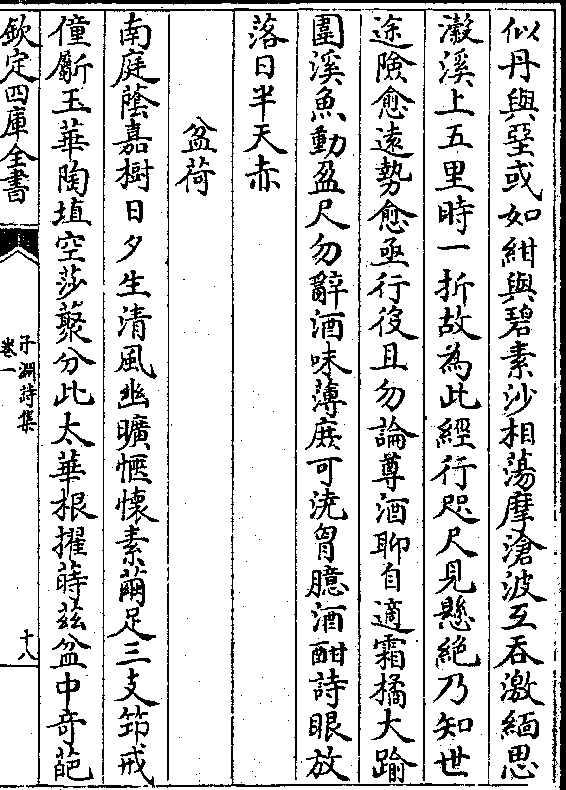 似丹與堊或如紺與碧素沙相蕩摩滄波互吞激緬思
瀔溪上五里時一折故為此經行咫尺見懸絶乃知世
途險愈遠勢愈亟行役且勿論尊酒聊自適霜橘大踰
圍溪魚動盈尺勿辭酒味薄庶可澆胷臆酒酣詩眼放
落日半天赤
盆荷
南庭蔭嘉樹日夕生清風幽曠愜懷素蘭足三支筇戒
僮斸玉華陶埴空莎藂分此太華根擢蒔茲盆中奇葩
欽定四庫全書
子淵詩集
卷一
十八